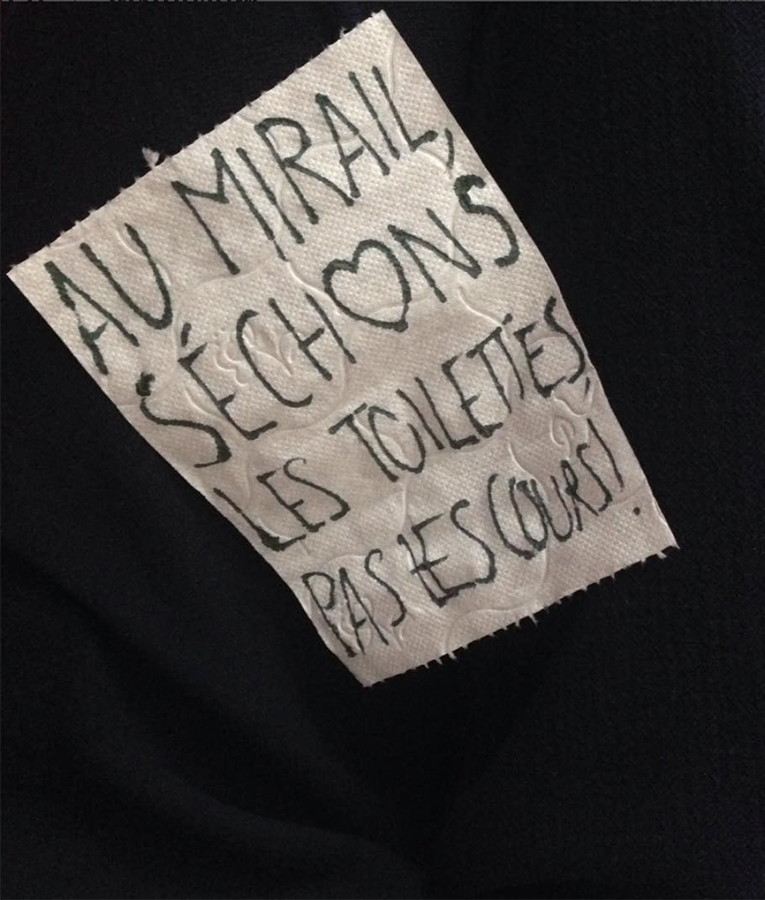 AU MIRAIL,
SÉCH♡NS
LES TOILETTES,
PAS LES COURS!